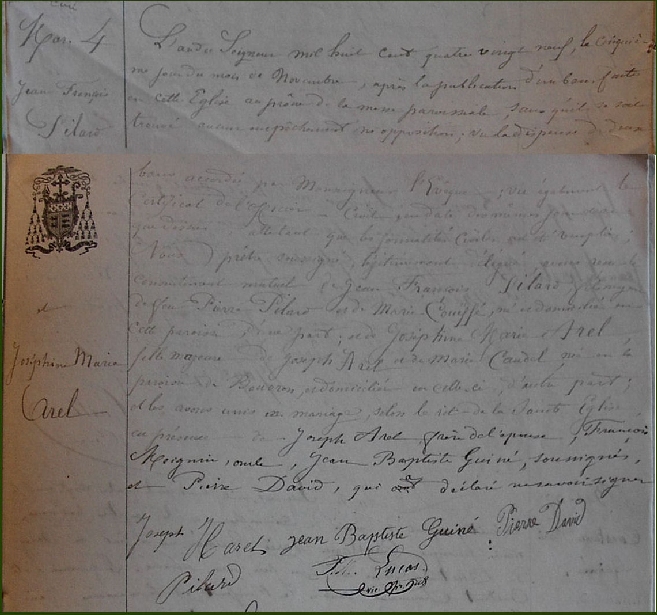 Mar. 4
Jean François
Pilard
et
Joséphine Marie
Arel
L'an du Seigneur mil huit cent quatre vingt neuf, le cinquiè-
me jour du mois de Novembre, après la publication d'un ban faite
en cette Eglise au prône de la messe paroissiale, sans qu'il se soit
trouvé aucun empêchement ni opposition; vu la dispense de deux
bans accordée par Monseigneur l'Evêque; vu également le
certificat de l'officier civil en date du même jour
que dessus attestant que les formalités civiles ont été remplies,
Nous prêtre soussigné, avons reçu le
consentement mutuel de Jean François Pilard
de feu Pierre Pilard et de Marie né et domicilié en
cette paroisse d'une part; et de Joséphine Marie Arel,
fille majeure de Joseph Arel et de Marie Caudel née en la
paroisse de et domiciliée en celle-ci, d'autre part;
et les avons unis en mariage, selon le rit de la Sainte Eglise
en présence de Joseph Arel frère de l'épouse, François
Moignrie, oncle, Jean Baptiste Guiné, soussignés,
et Pierre David, qui ont déclaré ne savoir signer
Joseph Harel Jean Baptiste Guiné Pierre David
Pilard Lucas